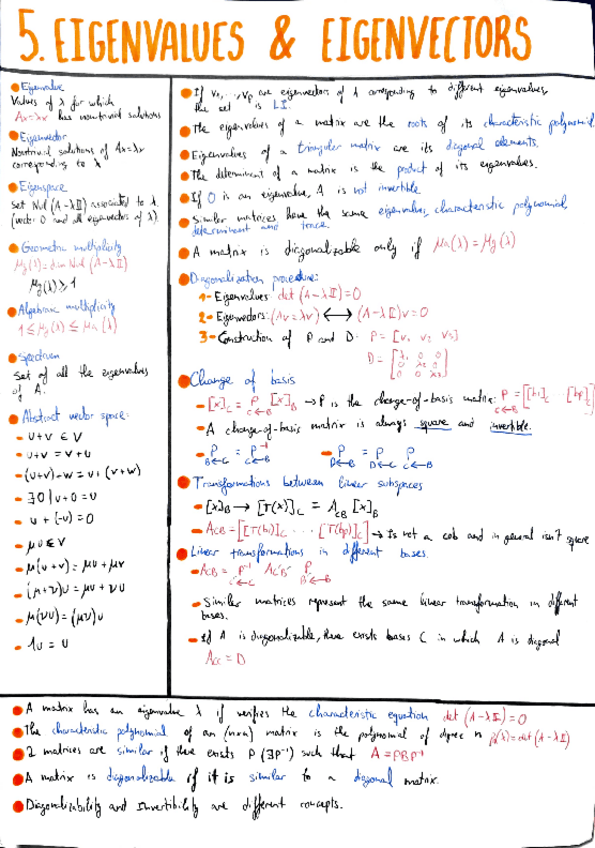 5. EIGENVALUES & EIGENVECTORS
Eigenvalue
Values of λ for which
Ax=λx has nontrivial solutions
Eigenvector
Nontrivial solutions of Ax=λx
corresponding to λ
Eigenspace
Set Nul (A-λI) associated to λ.
(vector 0 and all eigenvectors of λ)
Geometric multiplicity
Mg(λ)=dim Nul (A-λI)
Mg(λ)≥1
Algebraic multiplicity
1≤Mg(λ)≤Ma(λ)
Spectrum
Set of all the eigenvalues
of A.
Abstract vector space:
- u+v ∈ V
- u+v = v+u
- (u+v)+w = u+(v+w)
- ∃0 | u+0=u
- u+(-u)=0
- μu∈V
- μ(u+v)=μu+μv
- (μ+ν)u=μu+νu
- μ(νu)=(μν)u
- 1u=u
If v₁,...,vp are eigenvectors of A corresponding to different eigenvalues,
the set is LI.
The eigenvalues of a matrix are the roots of its characteristic polynomial
Eigenvalues of a triangular matrix are its diagonal elements.
The determinant of a matrix is the product of its eigenvalues.
If 0 is an eigenvalue, A is not invertible
Similar matrices have the same eigenvalues, characteristic polynomial,
determinant and trace.
A matrix is diagonalizable only if Ma(λ)=Mg(λ)
Diagonalization procedure:
1- Eigenvalues det(A-λI)=0
2- Eigenvectors: (Av=λv) ⟷ (A-λI)v=0
3- Construction of P and D. P=[v₁ v₂ v₃]
D = [λ₁ 0 0
0 λ₂ 0
0 0 λ₃]
Change of basis
- [x]C = P C←B [x]B → P is the change-of-basis matrix: P C←B = [[b₁]C [bp]C]
- A change-of-basis matrix is always square and invertible.
- P B←C = P⁻¹ C←B - P D←B = P D←C P C←B
Transformations between linear subspaces
- [x]B → [T(x)]C = ACB [x]B
- ACB=[[T(b₁)]C ... [T(bp)]C] → Is not a cob and in general isn't square
Linear transformations in different bases.
- ACB = P⁻¹ C'←C AC'B' P B'←B
- Similar matrices represent the same linear transformation in different
bases.
- If A is diagonalizable, there exists bases C in which A is diagonal
ACC = D
A matrix has an eigenvalue λ if verifies the characteristic equation det (A-λI)=0
The characteristic polynomial of an (nxn) matrix is the polynomial of degree n p(λ)=det(A-λI)
2 matrices are similar if there exists P (∃P⁻¹) such that A=PBP⁻¹
A matrix is diagonalizable if it is similar to a diagonal matrix.
Diagonalizability and Invertibility are different concepts.